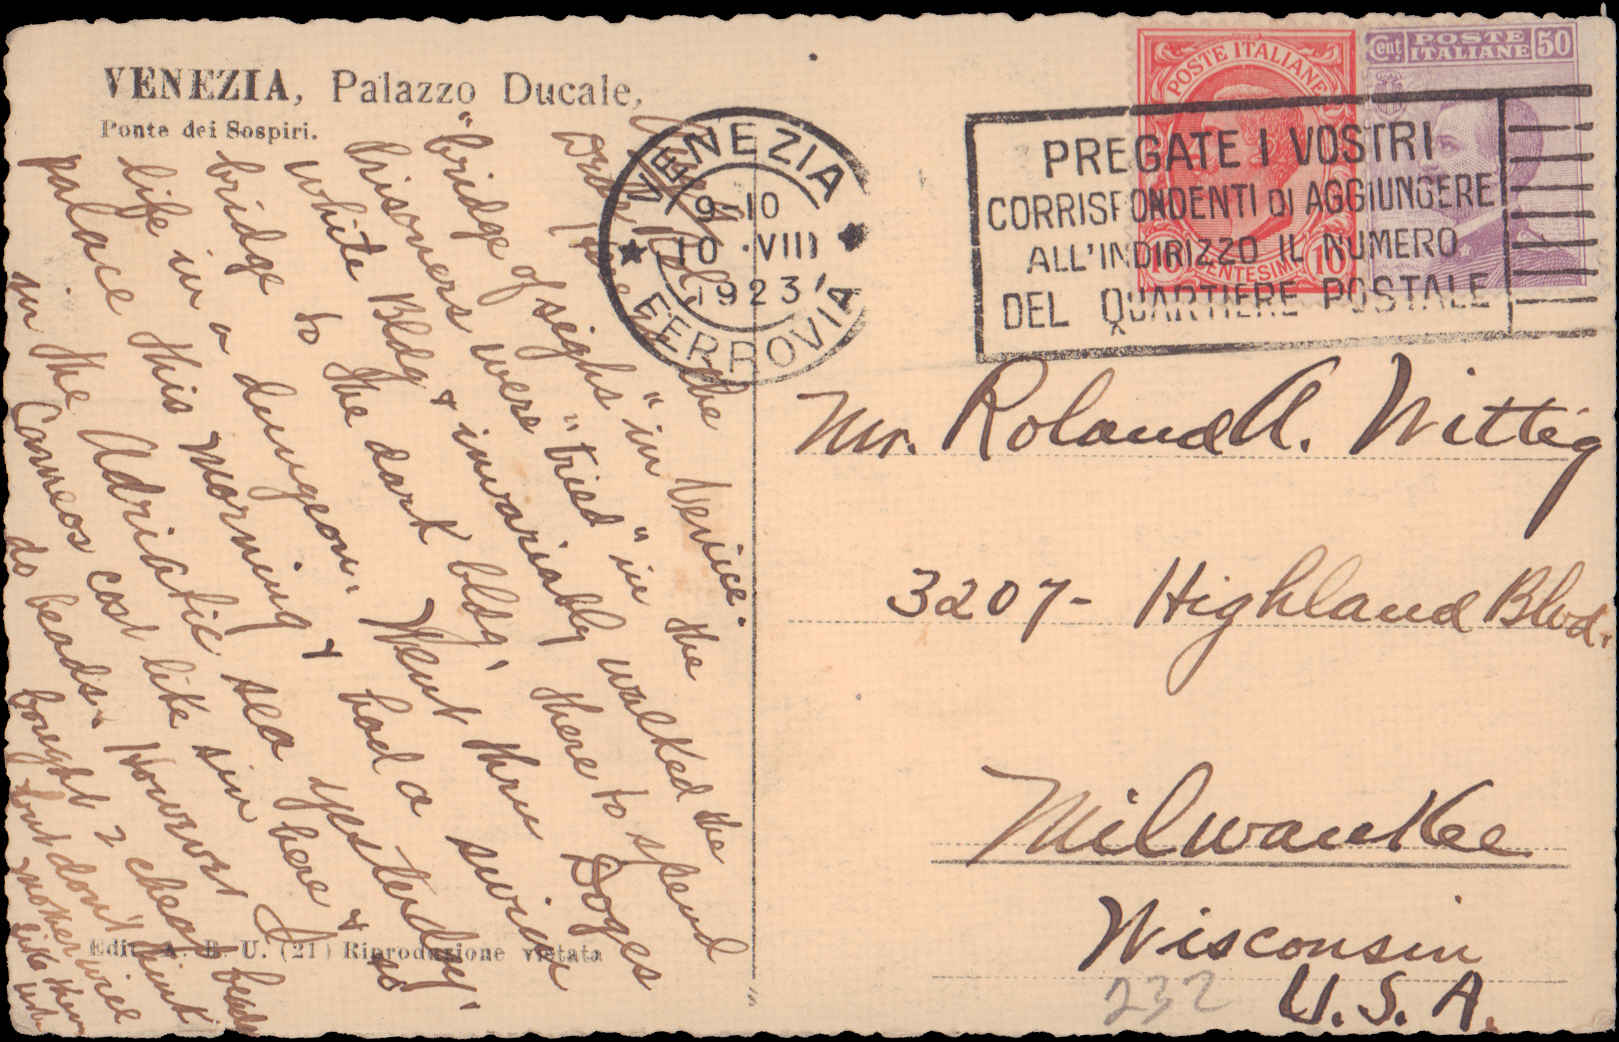 VENEZIA, Palazzo Ducale,
Ponte dei Sospiri.
the Venice.
"bridge of sighs" in the
prisoners were "tried" in walked the
white Bldg & invariably there to spend
bridge to the dark bldg,
life in a dungeon. Went thru Doges
palace this morning & had a swim
in the Adriatic sea yesterday.
Cameos cost like sin here & so
do beads. However I
bought 2 cheap beads
but don't think
mother will
like them
Edit. A. B. U. (21) Riproduzione vietata
VENEZIA
9-10
10 · VIII
1923
FERROVIA
POSTE ITALIANE
10 CENTESIMI 10
Cent. POSTE ITALIANE 50
PREGATE I VOSTRI
CORRISPONDENTI DI AGGIUNGERE
ALL'INDIRIZZO IL NUMERO
DEL QUARTIERE POSTALE
Mr. Roland A. Wittig
3207- Highland Blvd.
Milwaukee
Wisconsin
232 U.S.A.